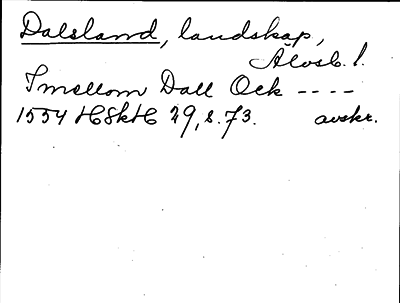 Dalsland, landskap,
Älvsb. l.
Jmellom Dall Ock ----
1554 HSkH 29, s. 73. avskr.